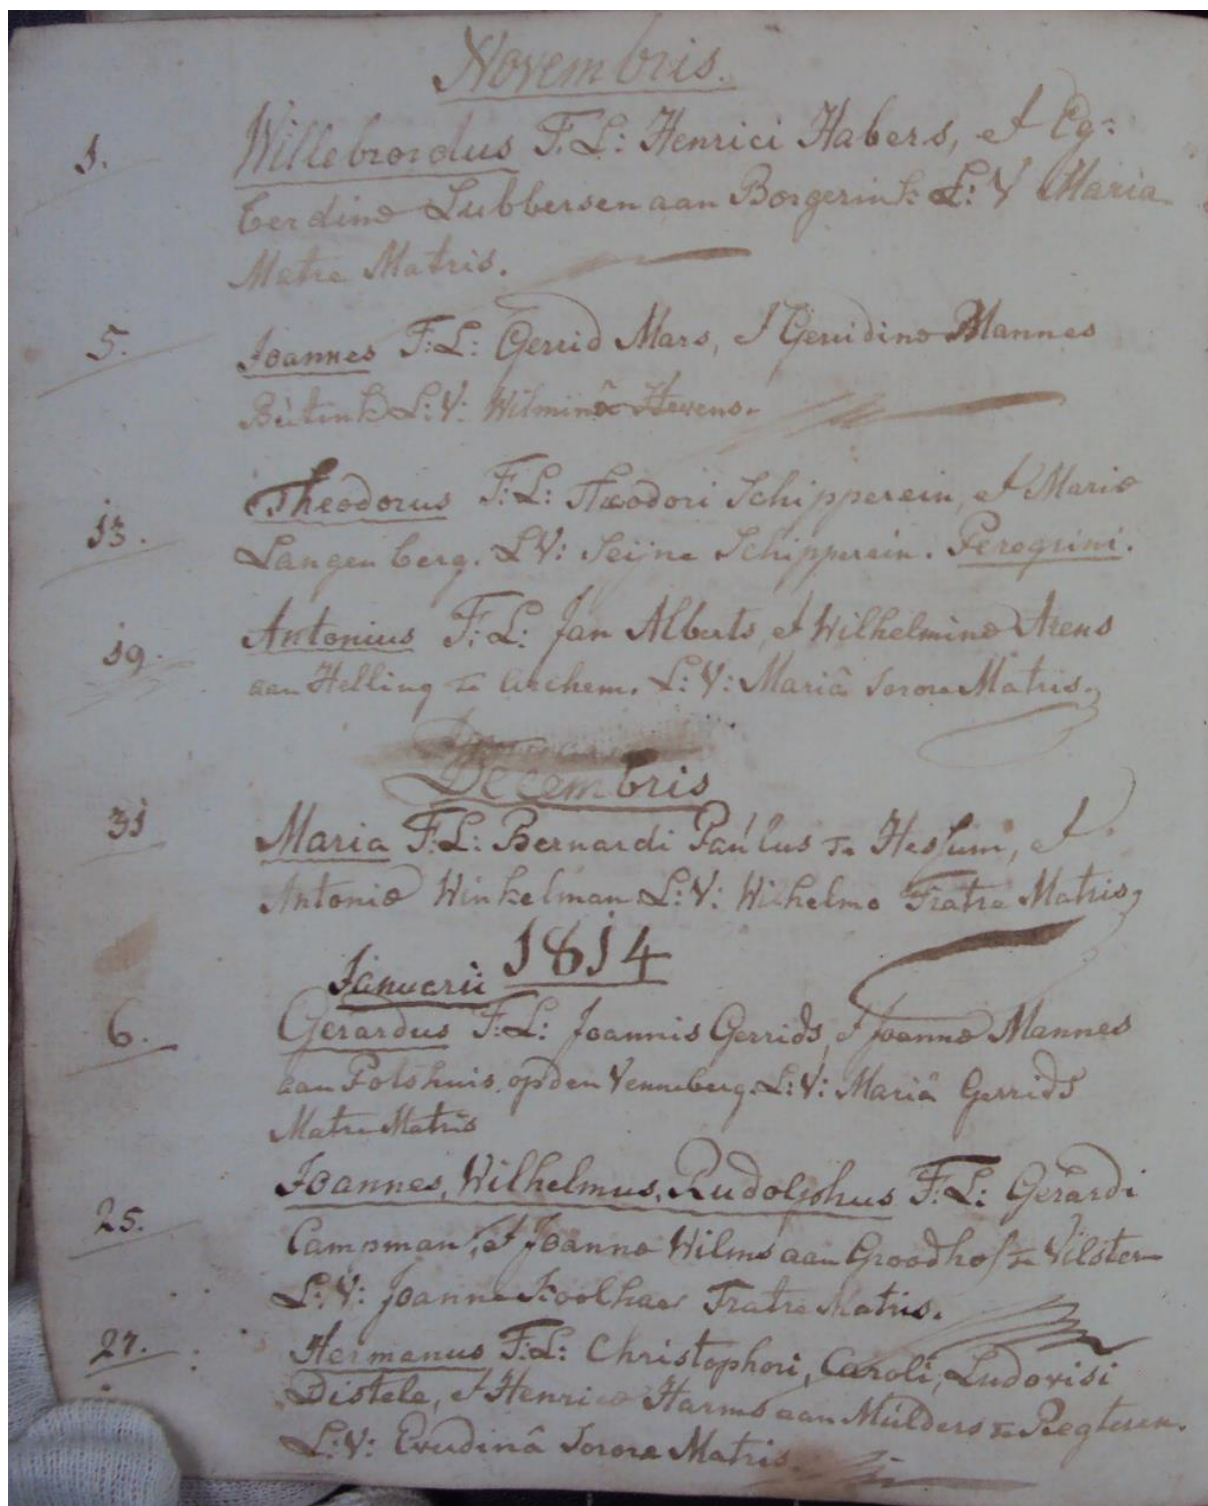 Novembris.
1. Willebrordus F. L: Henrici Habers, et Eg:
berdinæ Lubbersen aan Borgerink L: V Maria
Matre Matris.
5. Joannes F: L: Gerrid Mars, et Gerridinæ Mannes
L: V: Wilminâ
13. Theodorus F: L: Theodori Schipperein, et Mariæ
Langenberg. L V: Seijna Schipperein. Peregrini.
19. Antonius F: L: Jan Alberts, et Wilhelminæ Arens
aan Helling te Archem. L: V: Mariâ Sorore Matris.
Decembris
31 Maria F: L: Bernardi Paúlus te Hessum, et
Antoniæ Winkelman L: V: Wilhelmo Fratre Matris,
Januarii 1814
6. Gerardus F: L: Joannis Gerrids, et Joannæ Mannes
aan Polshuis op den Venneberg. L: V: Mariâ Gerrids
Matre Matris
25. Joannes, Wilhelmus, Rudolphus F: L: Gerardi
Campman, et Joannæ Wilms aan Groodhof te Vilster
L: V: Joanne Koolhaas Fratre Matris.
27. Hermanus F: L: Christophori, Caroli, Ludovisi
Distele, et Henricæ Harms aan Múlders te Regteren.
L: V: Evudinâ Sorore Matris.